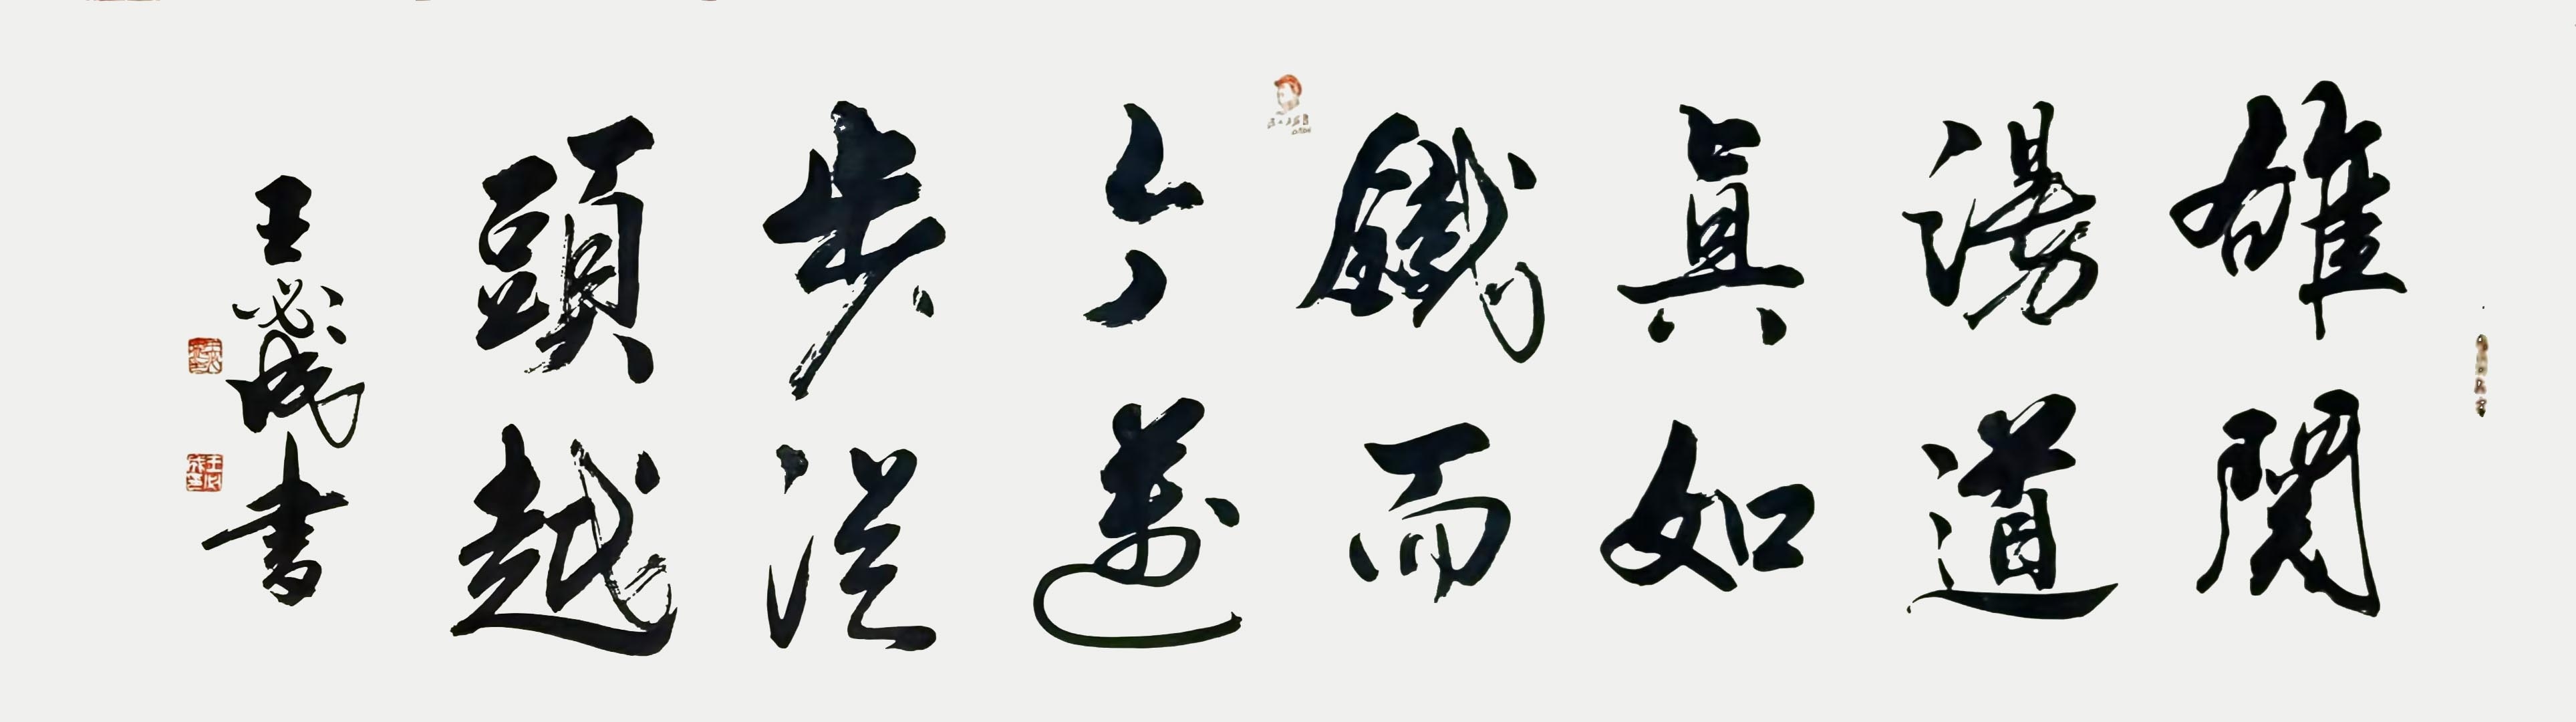 雄關
漫道
眞如
鐵而
今邁
步從
頭越
王必成書